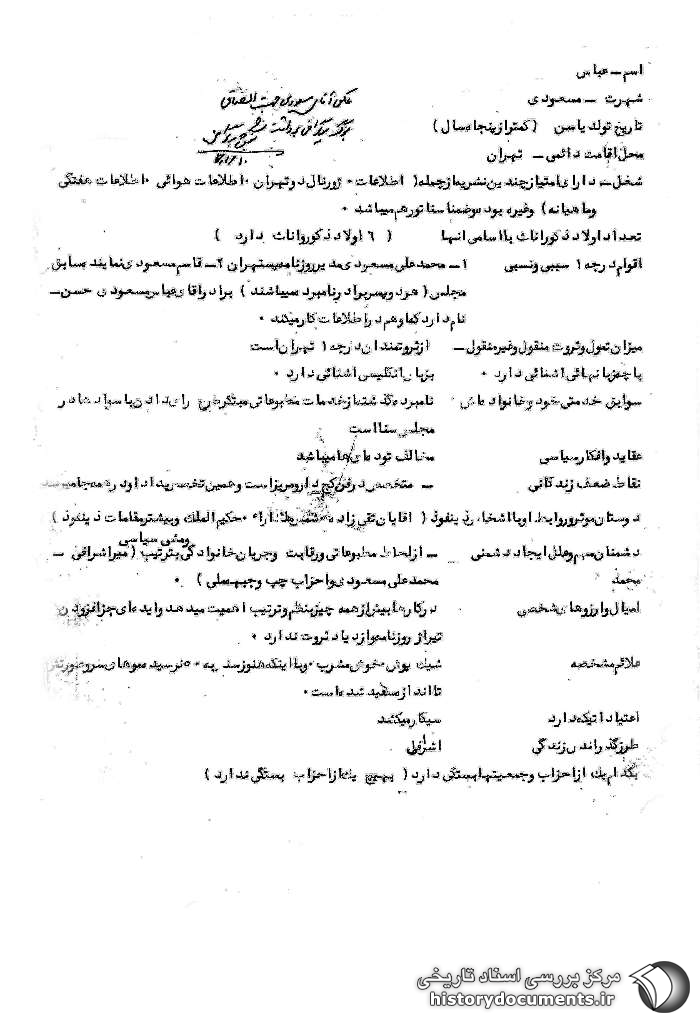 اسم ــ عباس
شهرت ــ مسعودی
تاریخ تولد یا سن (کمتر از پنجاه سال)
محل اقامت دائمی ــ تهران
شغل ــ دارای امتیاز چندین نشریه از جمله (اطلاعات ۰ ژورنال دو تهران ۰ اطلاعات هوائی ۰ اطلاعات هفتگی
و ماهیانه) وغیره بوده و ضمنا سناتور هم میباشد ۰
تعداد اولاد ذکور اناث با اسامی آنها (۶ اولاد ذکور و اناث دارد)
اقوام درجه ۱ سببی و نسبی ۱ــ محمد علی مسعودی مدیر روزنامه پست تهران ۲ــ قاسم مسعودی نماینده سابق
مجلس (هر دو پسر برادر نامبرده میباشند) برادر آقای عباس مسعودی حسن ــ
نام دارد که او هم در اطلاعات کار میکند ۰
میزان تمول و ثروت منقول و غیر منقول ــ از ثروتمندان درجه ۱ تهران است
با چه زبانهائی آشنائی دارد ۰ بزبان انگلیسی آشنائی دارد ۰
سوابق خدمتی خود و خانواده اش نامبرده گذشته از خدمات مطبوعاتی مبتکر طرح رای دادن با سوادها در
مجلس سنا است
عقاید و افکار سیاسی مخالف توده ای ها میباشد
نقاط ضعف زندگانی ــ متخصص در فن کج دار و مریز است و همین تخصص
دوستان موثر و روابط او با اشخاص ذینفوذ (آقایان تقی زاده ۰ حکیم الملک و بیشتر مقامات ذینفوذ)
دشمنان مهم و علل ایجاد دشمنی ــ از لحاظ مطبوعاتی و رقابت و مشی سیاسی و جریان خانوادگی بترتیب (میر اشرافی ــ
محمد محمد علی مسعودی و احزاب چپ و جبهه ملی) ۰
امیال و آرزوهای شخصی در کارها بیش از همه چیز بنظم و ترتیب اهمیت میدهد و ایده ای جز افزودن
تیراژ روزنامه و ازدیاد ثروت ندارد ۰
علائم مشخصه شیک پوش ۰ خوش مشرب ۰ و با اینکه هنوز سن به ۵۰ نرسیده موهای سر و صورتش
تا اندازه سفید شده است ۰
اعتیاداتیکه دارد سیگار میکشد
طرز گذراندن زندگی اشرافی
بکدام یک از احزاب و جمعیتها بستگی دارد (بهیچ یک از احزاب بستگی ندارد)
مرکز بررسی اسناد تاریخی
historydocuments.ir